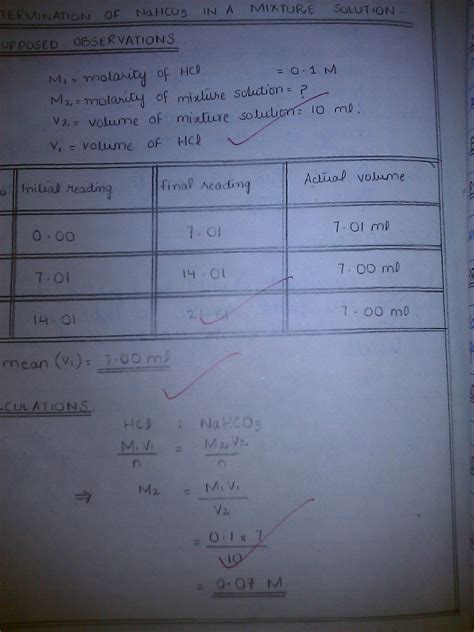 TERMINATION OF NaHCO3 IN A MIXTURE SOLUTION.
UPPOSED OBSERVATIONS.
M1 = molarity of HCl = 0.1 M
M2 = molarity of mixture solution = ?
V2 = volume of mixture solution = 10 ml.
V1 = volume of HCl
Initial reading final reading Actual volume
0.00 7.01 7.01 ml
7.01 14.01 7.00 ml
14.01 21.01 7.00 ml
mean (V1) = 7.00 ml
LCULATIONS.
HCl : NaHCO3
M1V1 = M2V2
n n
⇒ M2 = M1V1
V2
= 0.1 x 7
10
= 0.07 M